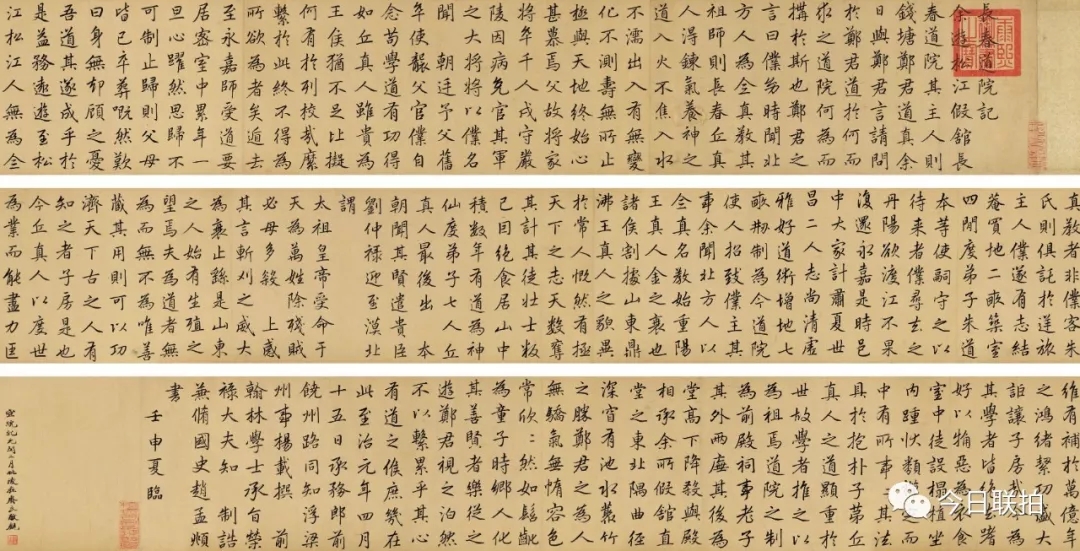 長春道院記
余遊松江假館長
春道院其主人則
錢塘鄭君道真余
日與鄭君言請問
於鄭君道於何而
求之道院何為而
搆於斯也鄭君之
言曰僕幼時聞北
方人為全真教其
祖師則長春丘真
人得鍊氣養神之
道入火不焦入水
不濡出入有無變
化不測壽無所止
極與天地終始心
甚慕焉父故將家
將卒千人戍守巖
陵因病免官其軍
之大將將以僕名
聞朝廷予父舊
卒使襲父官僕自
念苟學道有功得
如丘真人雖貴為
王侯猶不足比擬
何有於列校哉縻
繫於此終不得為
所欲為者矣逅去
至永嘉師受道要
居密室中累年一
旦心躍然思歸不
可制止歸則父母
皆已卒葬既然歎
曰身無却顧之憂
吾道其遂成乎於
是益務遠遊至松
江松江人無為全
真敎者非僅客朱
氏則俱託於逆旅
主人僕遂有志結
菴買地二畝築室
四間度弟子朱道
本等使嗣守之以
待來者僕尋玄之
丹陽欲渡江不果
復還永嘉是時邑
中大家計肅夏世
昌二人志尚清虛
雅好道術增地七
畝剙制為今道院
使人招致僕主其
事余聞北方人以
全真名教始重陽
王真人金之衰也
諸侯割據山東鼎
沸王真人之貌異
於常人慨然有為
於天下之志數奪
其計其徒壯士叛
己因絕食居山中
積數年有道為神
仙度弟子七人丘
真人最後出 本
朝聞其賢遣貴臣
劉仲祿迎至漠北
謂
太祖皇帝受命于
天為萬姓除殘賊
必毋多殺 上感
其言斬刈之威大
為衰止繇是山東
之人始有生殖之
望焉夫為道者無
為而無不為唯善
藏其用則可以功
濟天下古之人有
知之者子房是也
今丘真人以度世
為業而能盡力匡
維有補於萬億年
之鴻緒絜功盛大
詎讓子房哉故為
其學者皆絕去嗜
好以觕惡為衣食
室中徒設榻植坐
內踵忕類而
中有所事其法
具於抱朴子苐丘
真人之道顯重於
世故學者推以
為祖焉道院之制
為前殿祠事老子
其外兩廡其後為
堂高下降殺與殿
相承余所假館直
堂之東北隅曲徑
深窅有池水叢竹
之勝鄭君為人
無矯氣無惰容色
常欣欣然如髫齔
為童子時鄉人化
其善賢者樂從之
遊鄭君視之泊然
不以繫累乎其心
有道之俟庶幾在
此至治元年四月
十五日承務郎前
饒州路同知浮梁
州事楊載撰 前
翰林學士承旨榮
祿大夫知 制誥
兼脩國史趙孟頫
書
壬申夏臨
今日联拍